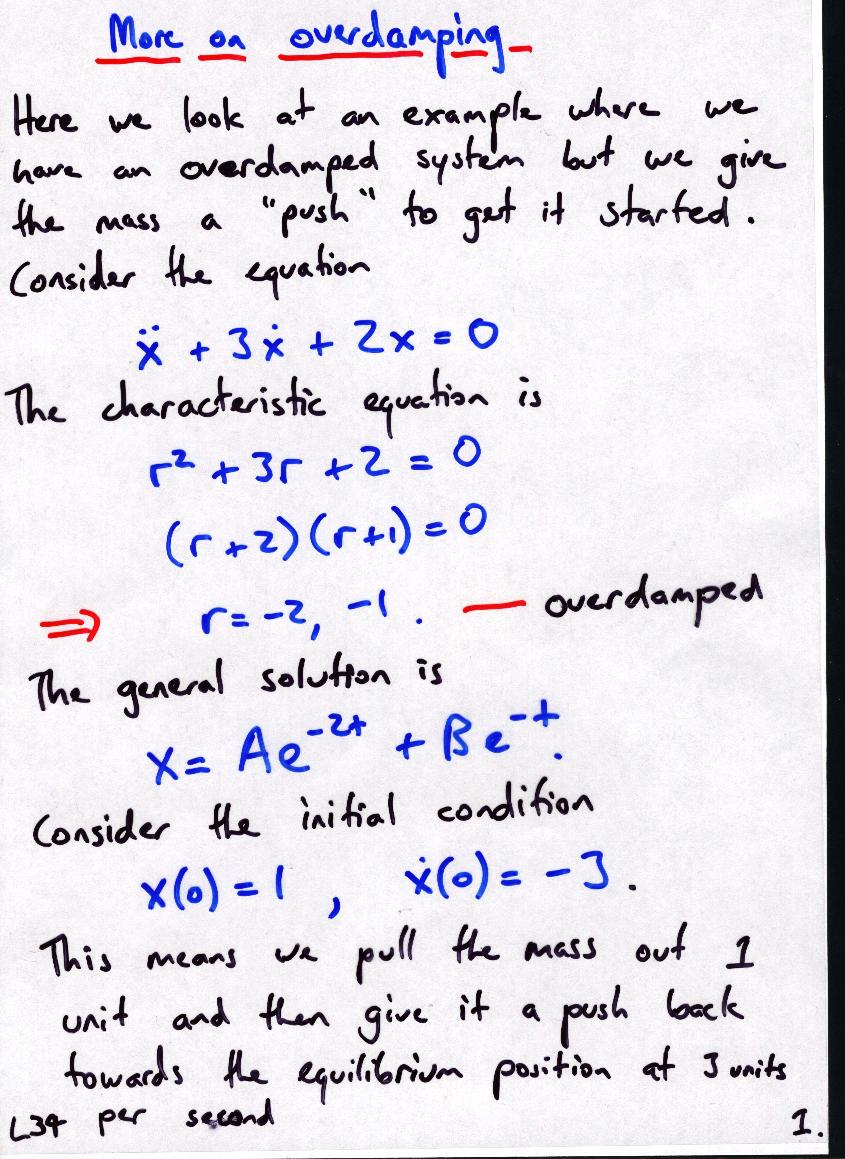 More on overdamping
Here we look at an example where we
have an overdamped system but we give
the mass a "push" to get it started.
Consider the equation
ẍ + 3ẋ + 2x = 0
The characteristic equation is
r² + 3r + 2 = 0
(r+2)(r+1) = 0
⇒ r = -2, -1. — overdamped
The general solution is
x = Ae^{-2t} + Be^{-t}.
Consider the initial condition
x(0) = 1, ẋ(0) = -3.
This means we pull the mass out 1
unit and then give it a push back
towards the equilibrium position at 3 units
L34 per second 1.